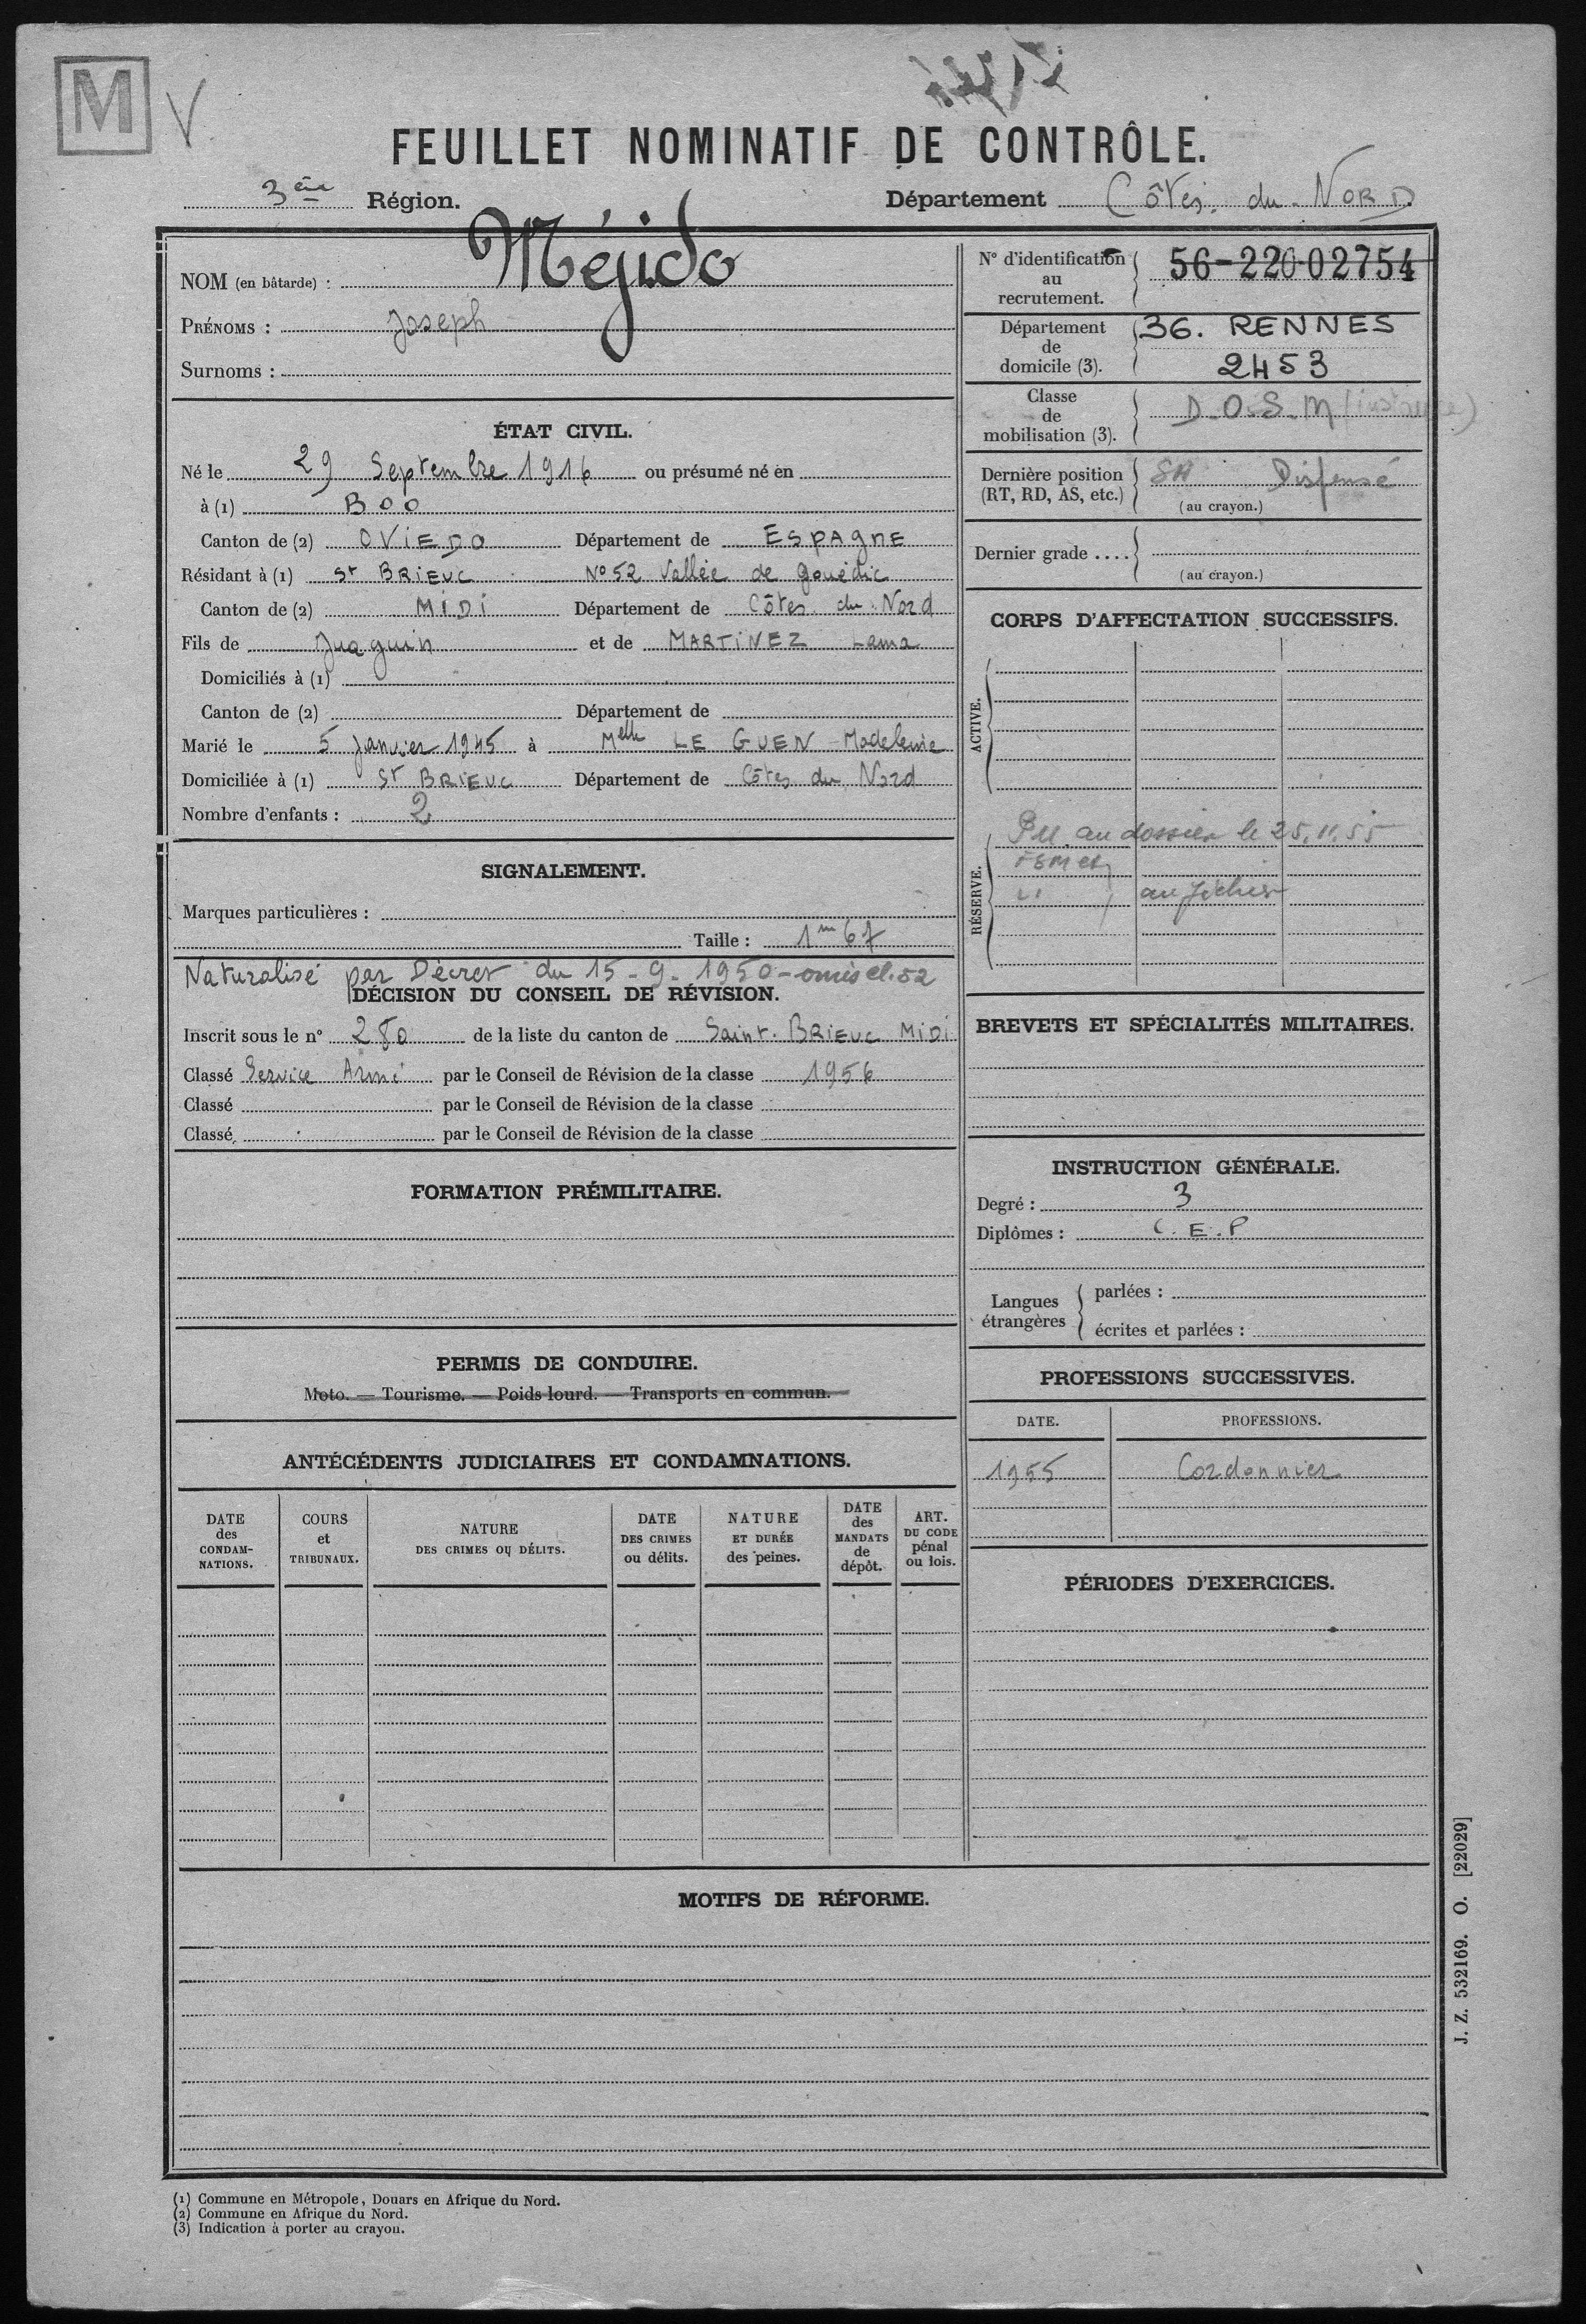 M V
FEUILLET NOMINATIF DE CONTRÔLE.
3ème Région. Département Côtes. du. NORD.
NOM (en bâtarde) : Méjido
PRÉNOMS : Joseph
Surnoms :
ÉTAT CIVIL.
Né le 29 Septembre 1916 ou présumé né en
à (1) BOO
Canton de (2) OVIEDO Département de ESPAGNE
Résidant à (1) St BRIEUC N° 52 Vallée de Gouédic
Canton de (2) MIDI Département de Côtes du Nord
Fils de Juaquin et de MARTINEZ Lama
Domiciliés à (1)
Canton de (2) Département de
Marié le 5 Janvier 1945 à Melle LE GUEN Madeleine
Domiciliée à (1) St BRIEUC Département de Côtes du Nord
Nombre d'enfants : 2
SIGNALEMENT.
Marques particulières :
Taille : 1m 67
Naturalisé par Décret du 15-9-1950 - omis cl. 52
DÉCISION DU CONSEIL DE RÉVISION.
Inscrit sous le n° 280 de la liste du canton de Saint-BRIEUC MIDI
Classé Service Armé par le Conseil de Révision de la classe 1956
Classé par le Conseil de Révision de la classe
Classé par le Conseil de Révision de la classe
FORMATION PRÉMILITAIRE.
PERMIS DE CONDUIRE.
Moto. — Tourisme. — Poids lourd. — Transports en commun.
ANTÉCÉDENTS JUDICIAIRES ET CONDAMNATIONS.
DATE des CONDAM-NATIONS.
COURS et TRIBUNAUX.
NATURE DES CRIMES OU DÉLITS.
DATE DES CRIMES ou délits.
NATURE ET DURÉE des peines.
DATE des MANDATS de dépôt.
ART. DU CODE pénal ou lois.
N° d'identification au recrutement. 56-220-02754
Département de domicile (3). 36. RENNES
2453
Classe de mobilisation (3). D.O.S.M
Dernière position (RT, RD, AS, etc.) SA Dispensé
(au crayon.)
Dernier grade ....
(au crayon.)
CORPS D'AFFECTATION SUCCESSIFS.
ACTIVE.
RÉSERVE.
au dossier le 25.11.55
au fichier
BREVETS ET SPÉCIALITÉS MILITAIRES.
INSTRUCTION GÉNÉRALE.
Degré : 3
Diplômes : C.E.P
Langues étrangères
parlées :
écrites et parlées :
PROFESSIONS SUCCESSIVES.
DATE. PROFESSIONS.
1955 Cordonnier
PÉRIODES D'EXERCICES.
MOTIFS DE RÉFORME.
J. Z. 532169. O. [22029]
(1) Commune en Métropole, Douars en Afrique du Nord.
(2) Commune en Afrique du Nord.
(3) Indication à porter au crayon.